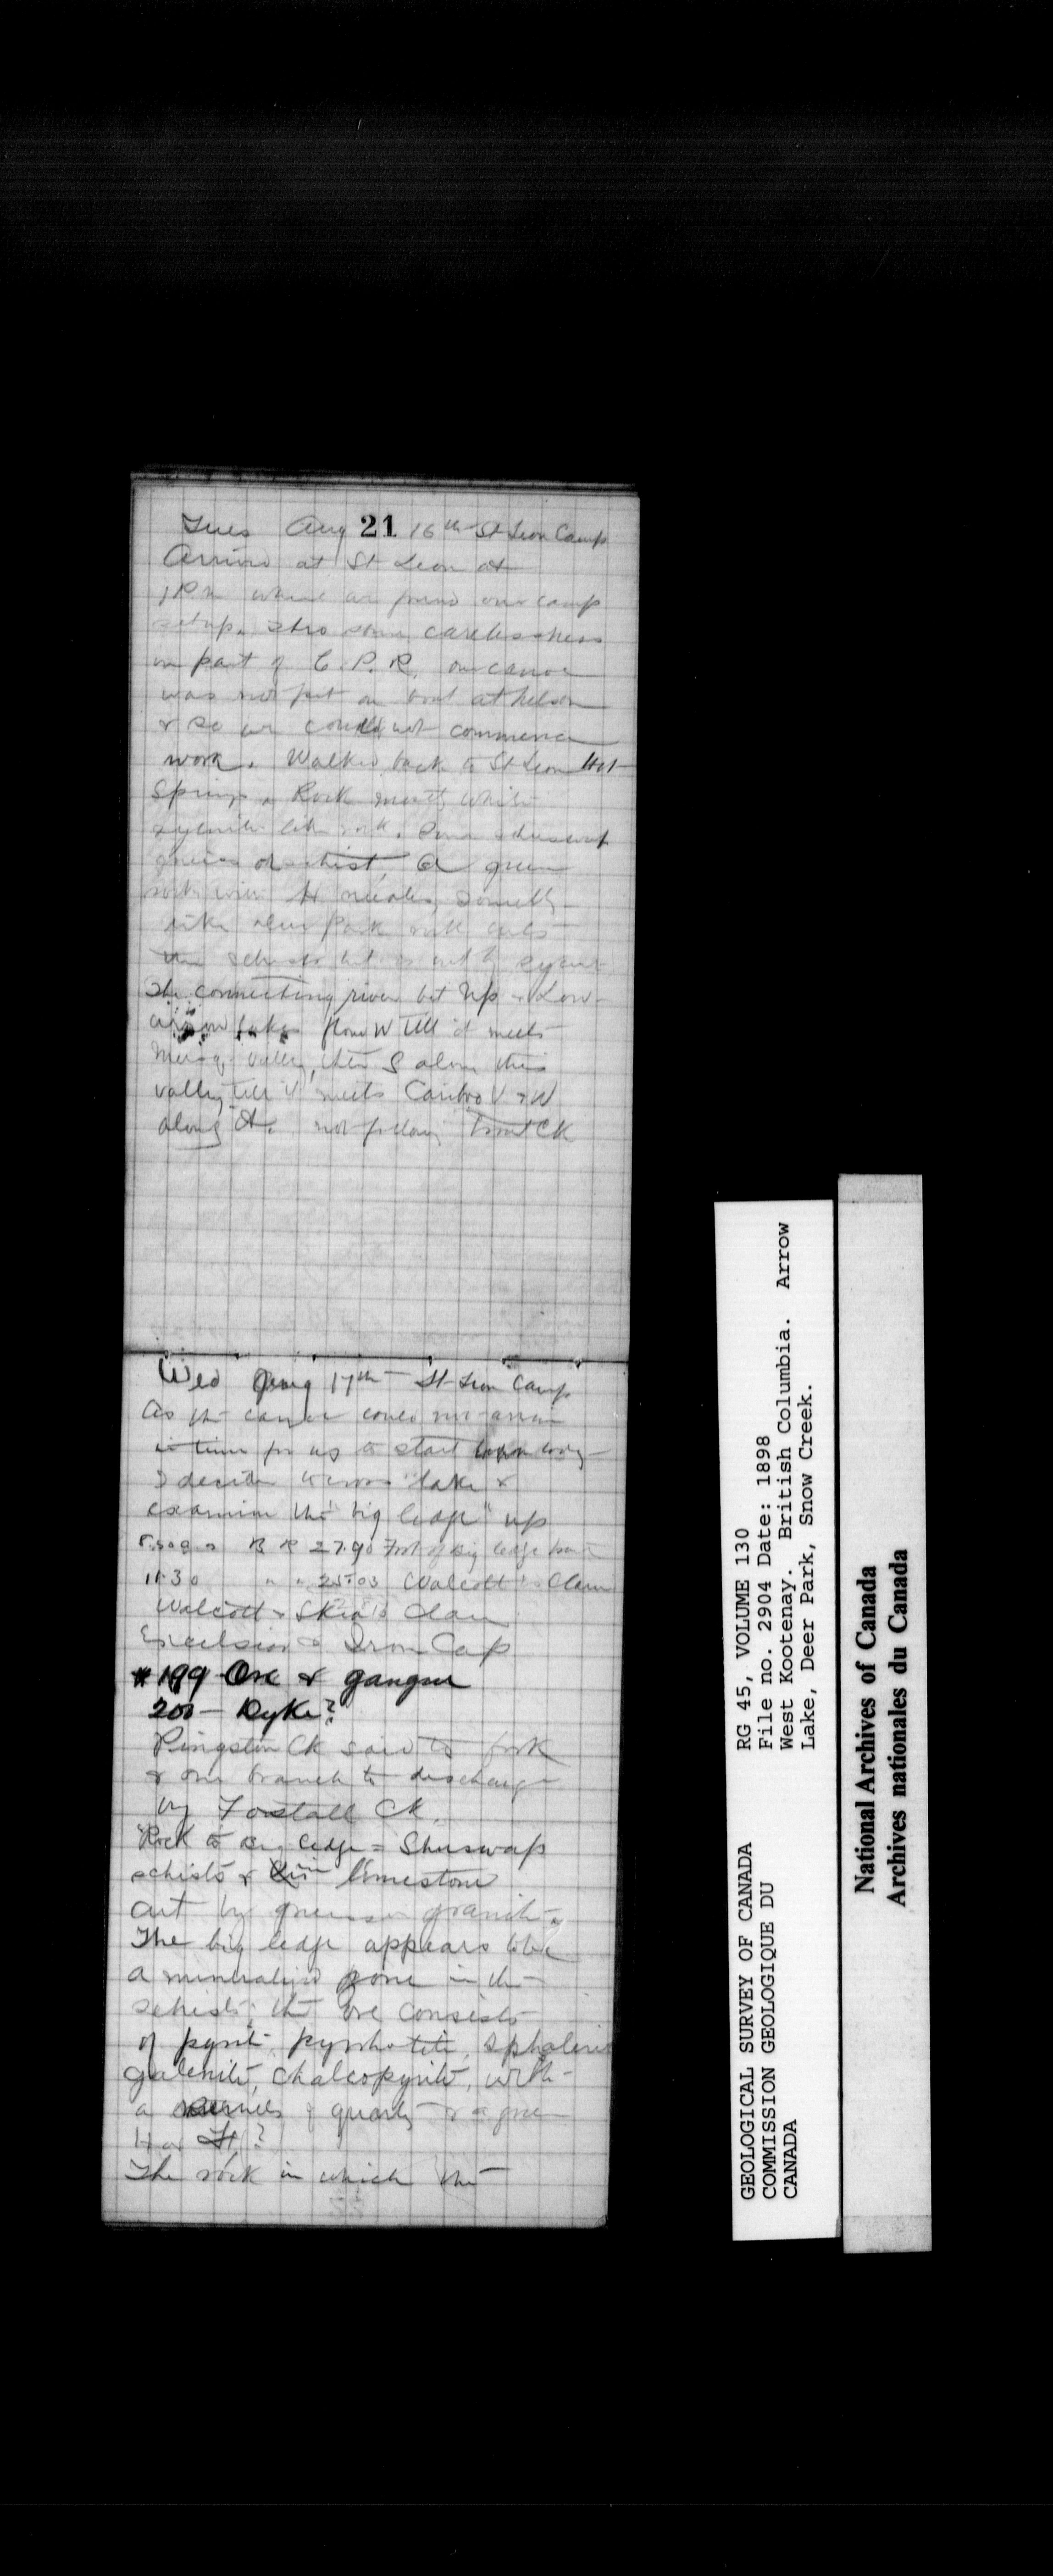 Tues Aug 21 16th St Leon Camp
Arrive at St Leon at
1 P.M. where we found our camp
setup. thro some carelessness
on part of C. P. R. our canoe
was not put on boat at Nelson
& so we could not commence
work. Walked back to St Leon Hot
Springs. Rock mostly white
syenite like rock. Some shuswap
gneiss or schist, A green
rock with H needles,
like deer Park rock cuts
the schists but is cut by
The connecting river bet Up & Low
arrow lakes flows W till it meets
valley, then S along this
valley till it meets Cariboo V & W
along it. not following Trout CK
Wed Aug 17th St Leon Camp
As the canoe could not arrive
in time for us to start
I decide to cross lake &
examine the "big ledge" up
B R 27.90 Foot of big ledge
11.30 " " 25.03 Walcott's Claim
Walcott & Claim
Excelsior & Iron Cap
# 199 Ore & gangue
200 - Dyke?
Pingston Ck said to fork
& one branch to discharge
by Fostall Ck.
Rock to big ledge = Shuswap
schists & limestone
cut by granite.
The big ledge appears to be
a mineralized zone in the
schists; the ore consists
of pyrite, pyrrhotite, sphalerite
galenite, chalcopyrite, with
a of quartz & a green
H
The rock in which the
RG 45, VOLUME 130
File no. 2904 Date: 1898
West Kootenay. British Columbia. Arrow
Lake, Deer Park, Snow Creek.
GEOLOGICAL SURVEY OF CANADA
COMMISSION GEOLOGIQUE DU
CANADA
National Archives of Canada
Archives nationales du Canada